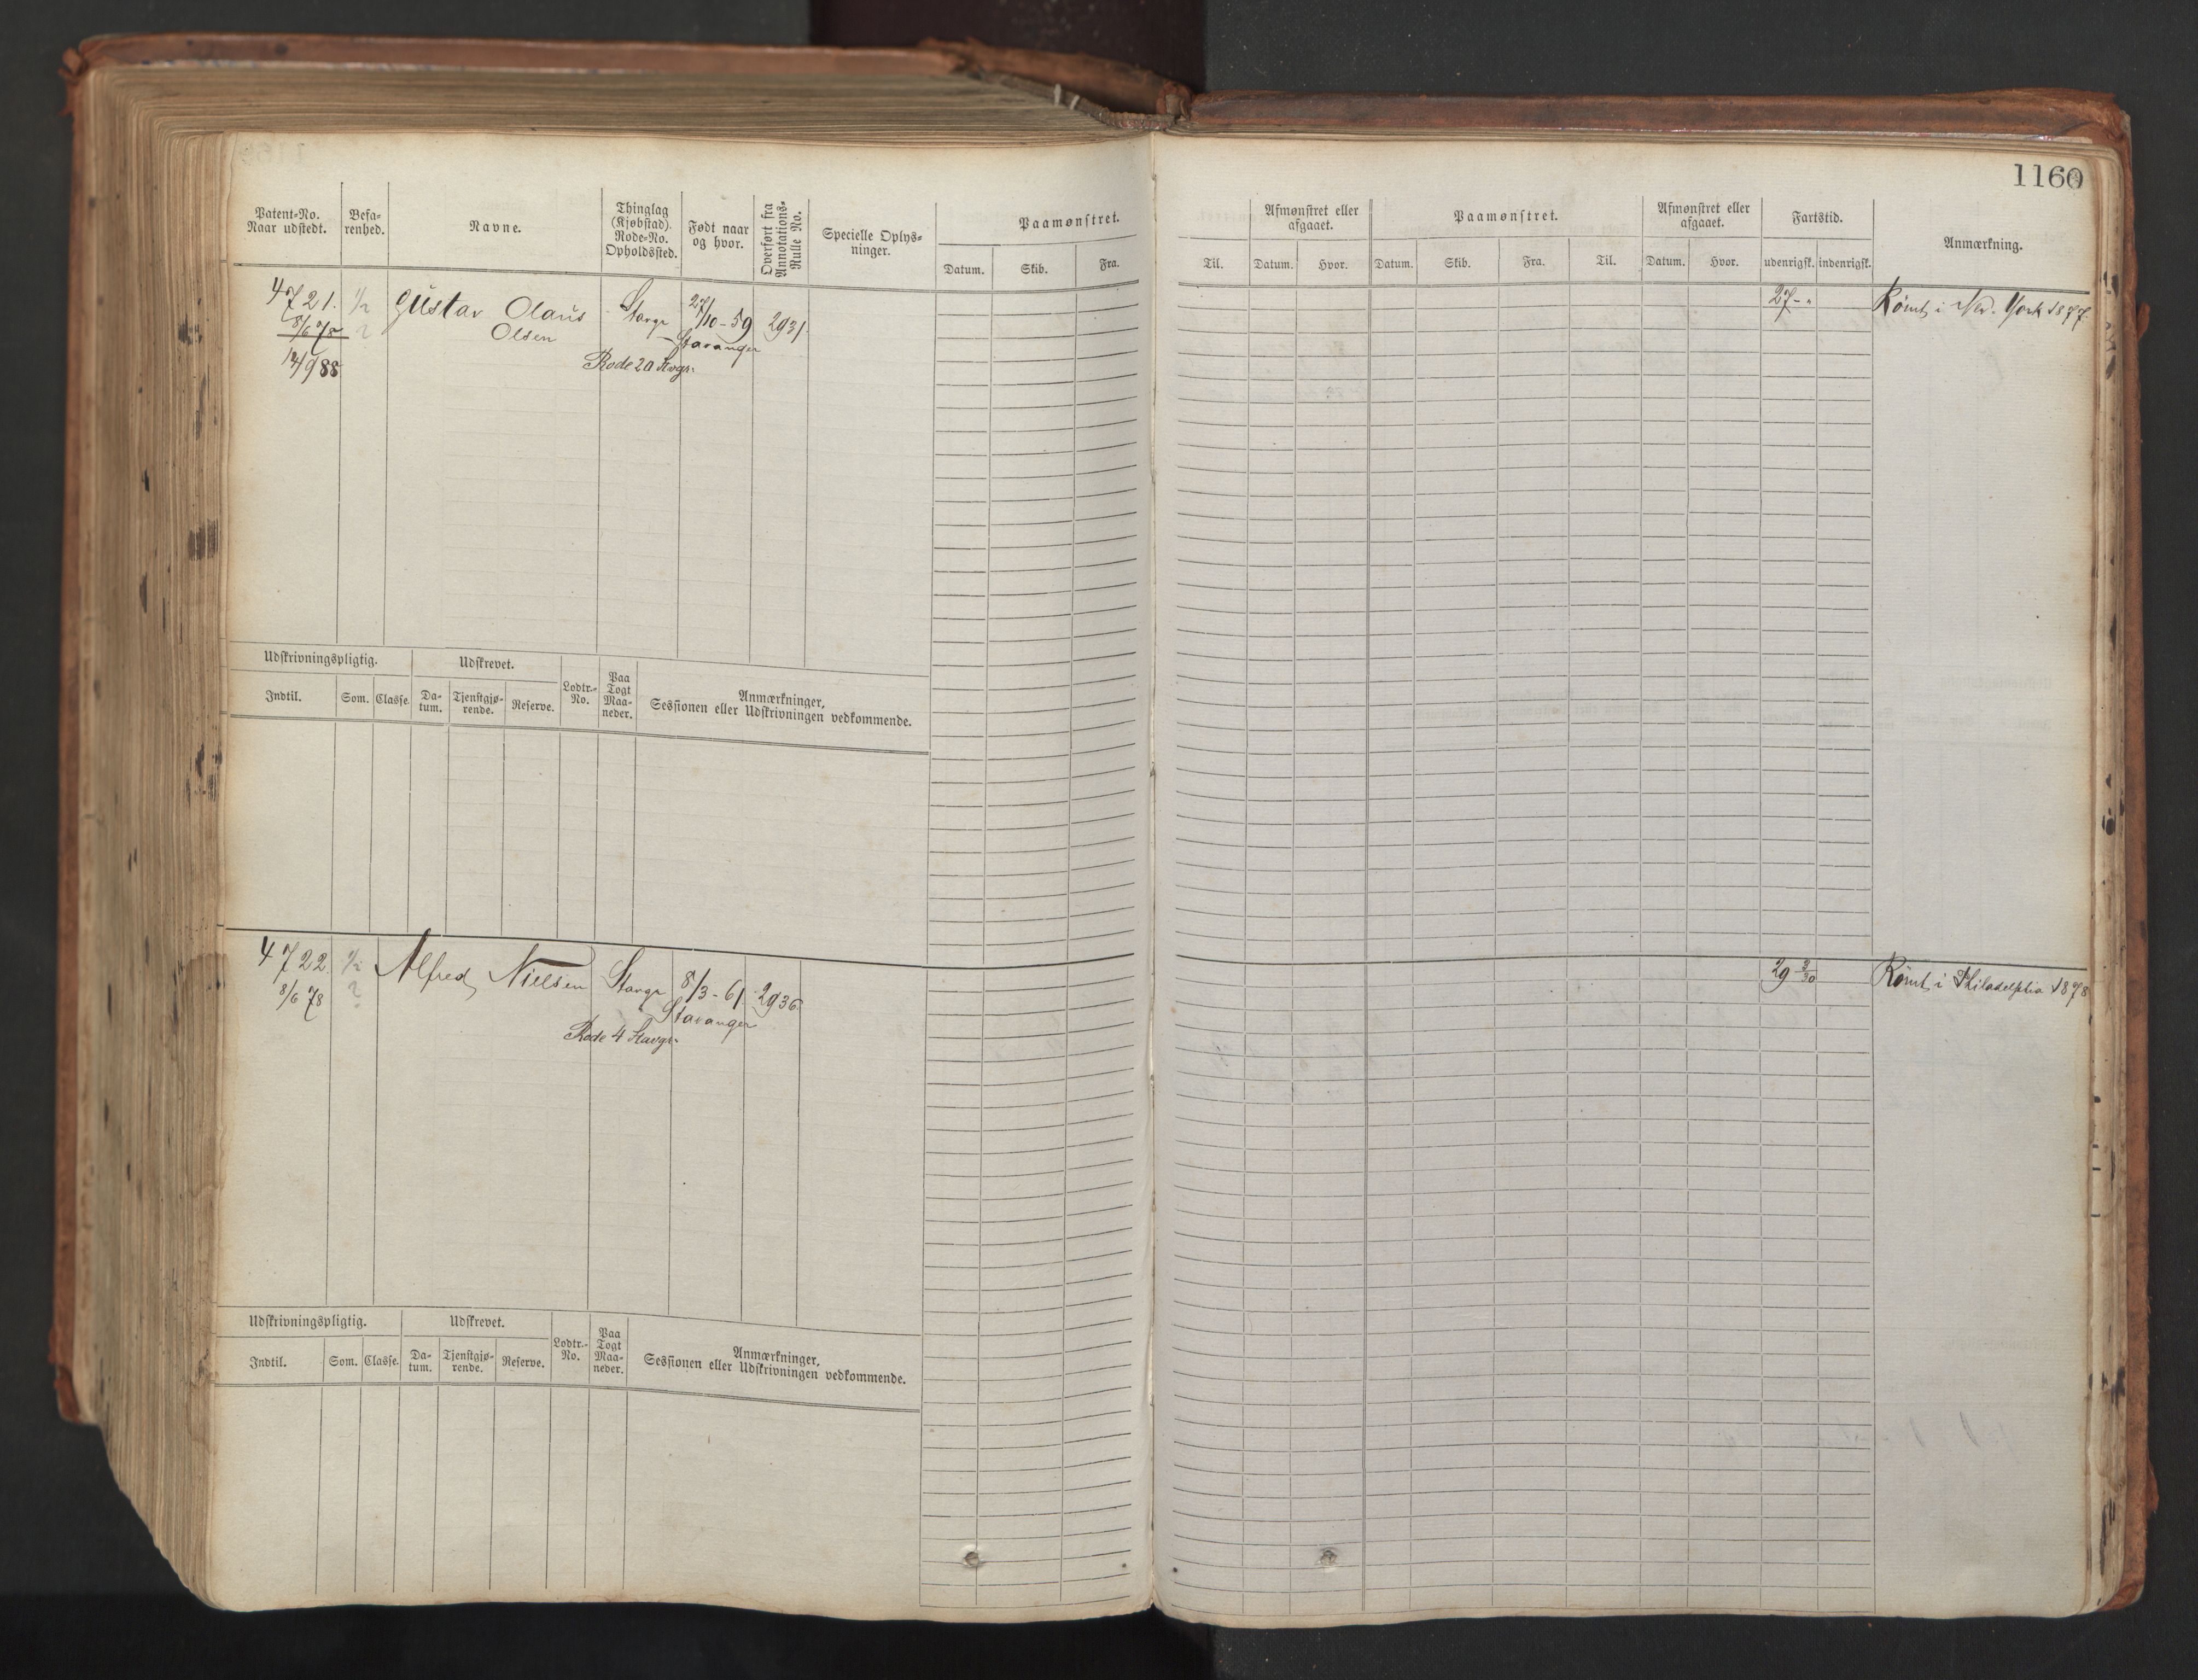 1160
Patent-No.
Naar udstedt.
Befa-
renhed.
Navne.
Thinglag
(Kjøbstad).
Rode-No.
Opholdssted.
Født naar
og hvor.
Overført fra
Annotations-
Rulle No.
Specielle Oplys-
ninger.
Paamønstret.
Datum. Skib. Fra.
Til.
Afmønstret eller
afgaaet.
Datum. Hvor.
Paamønstret.
Datum. Skib. Fra. Til.
Afmønstret eller
afgaaet.
Datum. Hvor.
Fartstid.
udenrigsk. indenrigsk.
Anmærkning.
4721. 1/2 Gustav Olaus Stavgr 27/10-59 2931 27 - " Rømt i New York 1877.
8/6 78 Olsen Stavanger
14/9 88 Rode 20 Stavgr.
Udskrivningspligtig.
Indtil. Som. Classe.
Udskrevet.
Da-
tum.
Tjenstgjø-
rende.
Reserve.
Lodtr.-
No.
Paa
Togt
Maa-
neder.
Anmærkninger,
Sessionen eller Udskrivningen vedkommende.
4722 1/2 Alfred Nielsen Stavgr 8/3-61 2936 29 3/30 Rømt i Philadelphia 1878
8/6 78 Stavanger
Rode 4 Stavgr.
Udskrivningspligtig.
Indtil. Som. Classe.
Udskrevet.
Da-
tum.
Tjenstgjø-
rende.
Reserve.
Lodtr.-
No.
Paa
Togt
Maa-
neder.
Anmærkninger,
Sessionen eller Udskrivningen vedkommende.